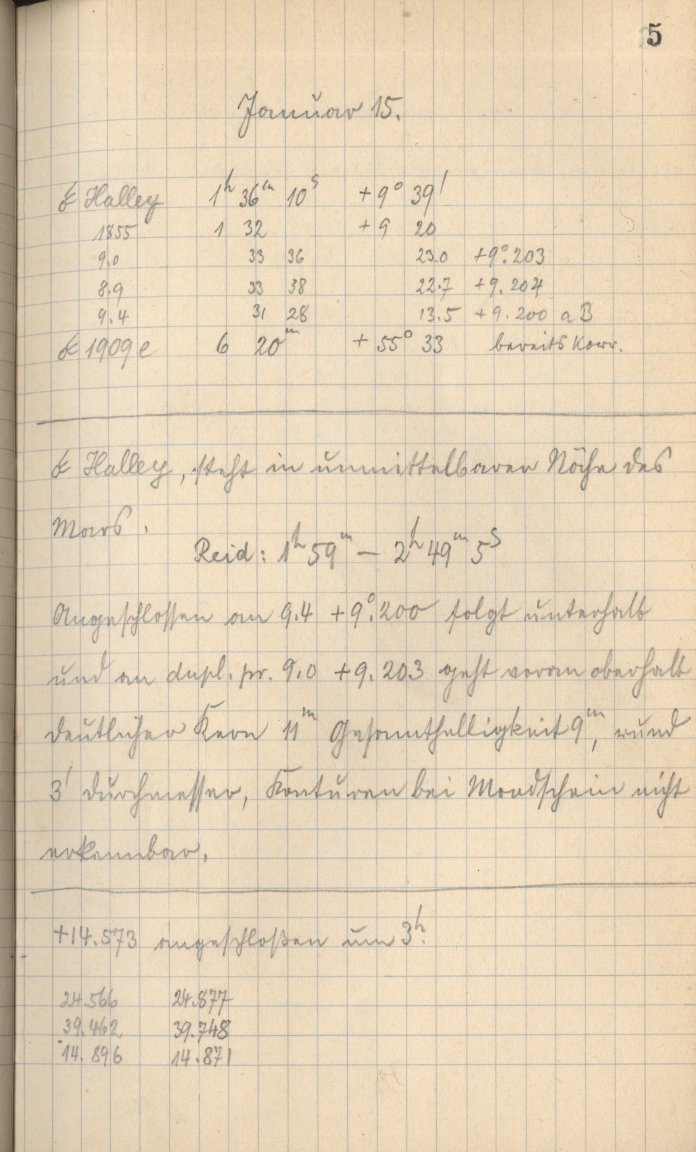 5
Januar 15.
☄ Halley 1h 36m 10s +9° 39'
1855 1 32 +9 20
9.0 33 36 23.0 +9°.203
8.9 33 38 22.7 +9.204
9.4 31 28 13.5 +9.200 a B
☄ 1909 e 6 20m +55° 33 bereits korr.
☄ Halley, steht in unmittelbarer Nähe des
Mars.
Reid: 1h 59m – 2h 49m 5s
Angeschlossen an 9.4 +9°.200 folgt unterhalb
und an dupl. pr. 9.0 +9.203 geht voran oberhalb
deutlicher Kern 11m Gesammthelligkeit 9m, rund
3' Durchmesser, Konturen bei Mondschein nicht
erkennbar.
+14.573 angeschloßen um 3h.
24.566 24.877
39.462 39.748
14.896 14.871